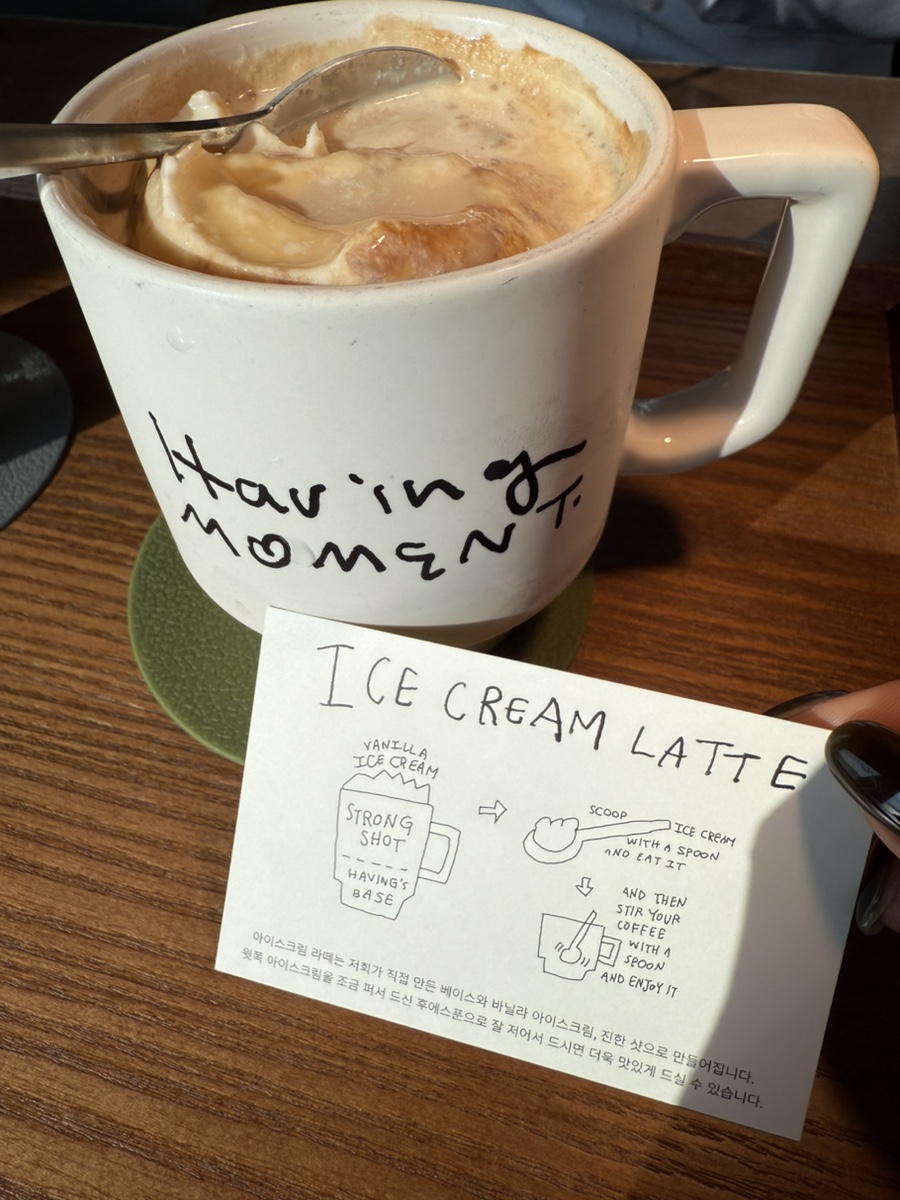 Having
MOMENT.
ICE CREAM LATTE
VANILLA
ICE CREAM
STRONG
SHOT
HAVING'S
BASE
SCOOP
ICE CREAM
WITH A SPOON
AND EAT IT
AND THEN
STIR YOUR
COFFEE
WITH A
SPOON
AND ENJOY IT
아이스크림 라떼는 저희가 직접 만든 베이스와 바닐라 아이스크림, 진한 샷으로 만들어집니다.
윗쪽 아이스크림을 조금 퍼서 드신 후에스푼으로 잘 저어서 드시면 더욱 맛있게 드실 수 있습니다.